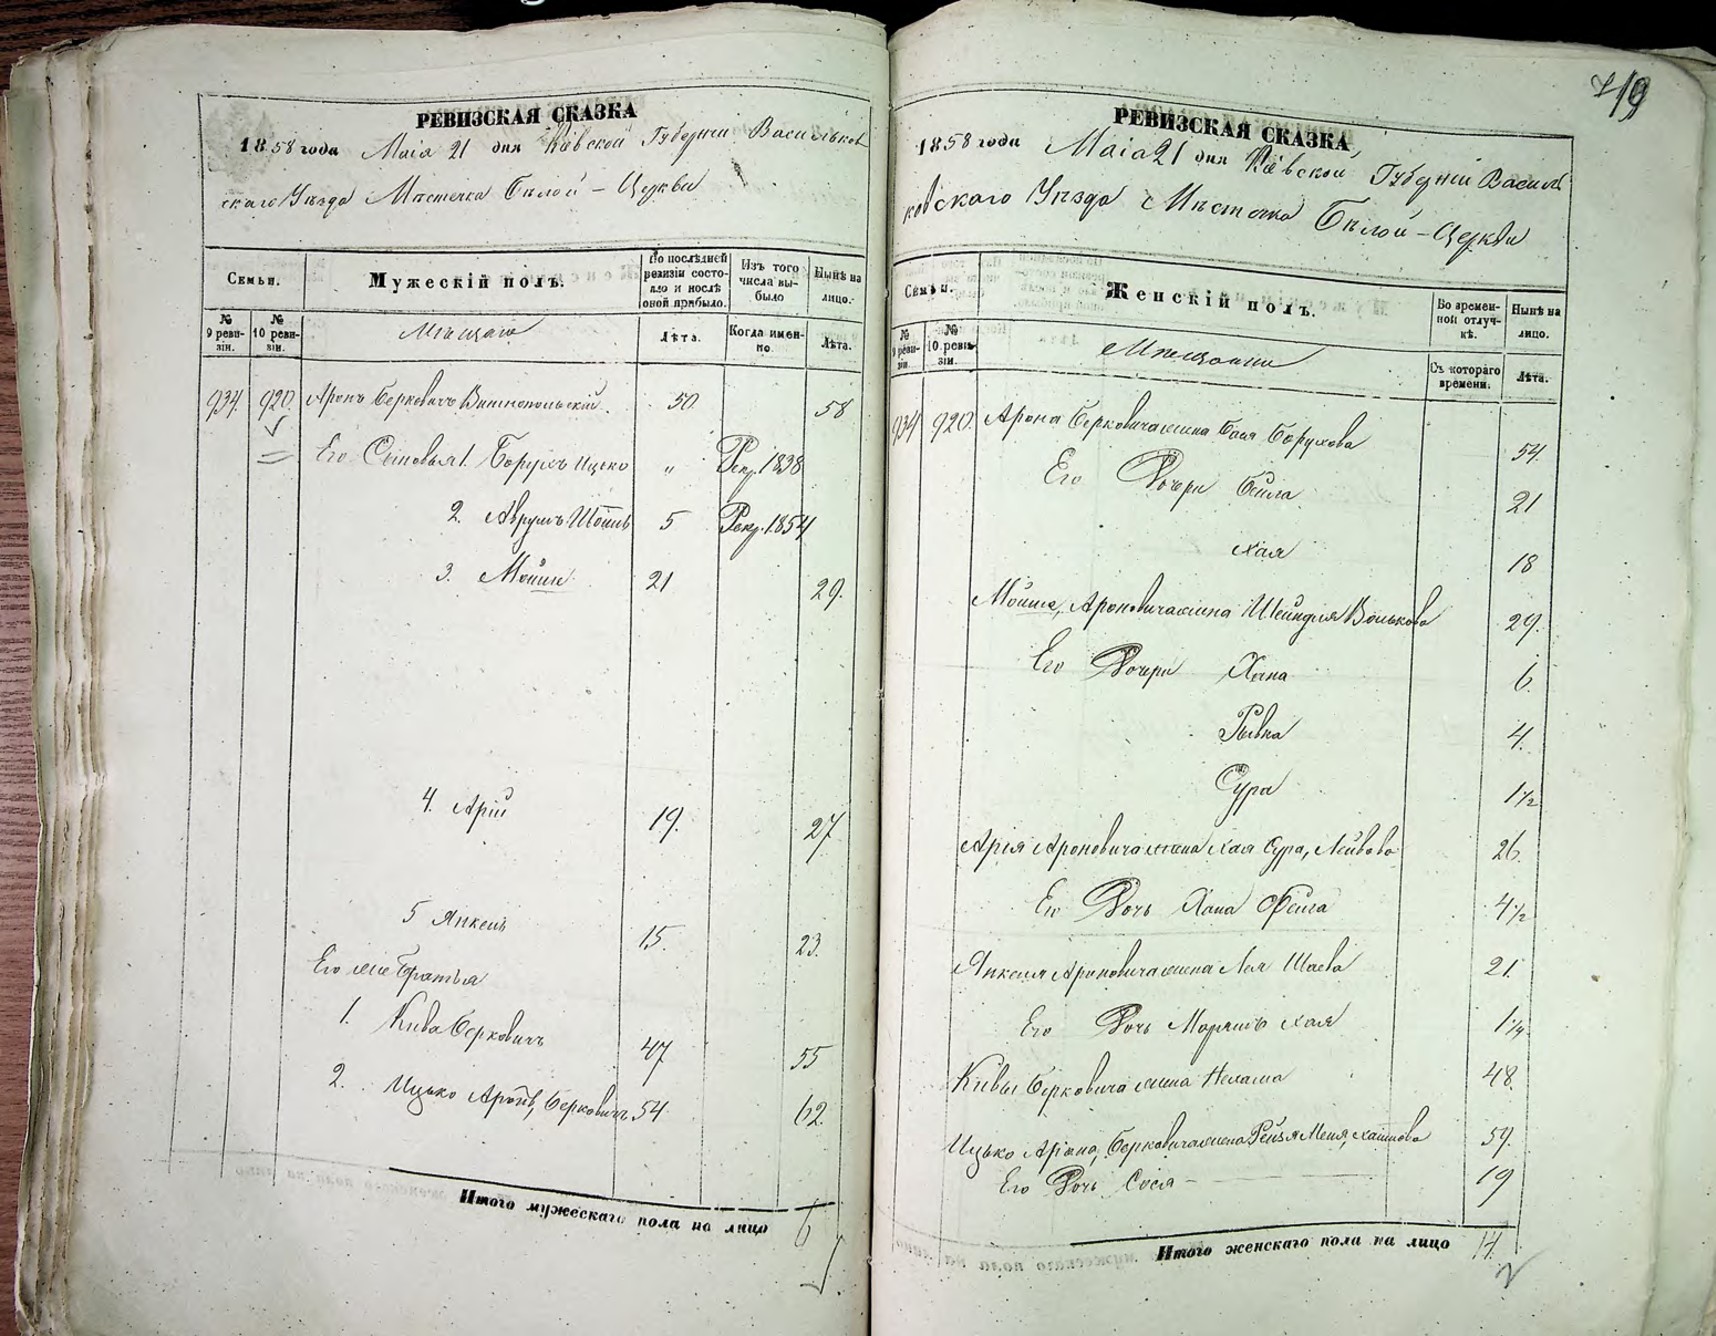 РЕВИЗСКАЯ СКАЗКА
1858 года Маія 21 дня Кіевской Губерніи Васильков
скаго Уѣзда Мѣстечка Бѣлой - Церкви
Семьи.
Мужескій полъ.
По послѣдней ревизіи состояло и послѣ оной прибыло.
Изъ того числа выбыло
Нынѣ на лицо.
№ 9 ревизіи.
№ 10 ревизіи.
Мѣщане
Лѣта.
Когда именно.
Лѣта.
934 920 Аронъ Берковичъ Винтопольскій. 50 58
Его Сыновья 1. Борухъ Ицско „ Рекр. 1838
2. Аврумъ Шоилъ 5 Рекр. 1854
3. Мойше 21 29.
4. Арій 19. 27
5 Янкель 15. 23.
Его же Братья
1. Кива Берковичъ 47 55
2. Ицько Аронъ, Берковичъ 54 62.
Итого мужескаго пола на лицо 6
419
РЕВИЗСКАЯ СКАЗКА
1858 года Маія 21 дня Кіевской Губерніи Василь
ковскаго Уѣзда Мѣстечка Бѣлой - Церкви
Семьи.
Женскій полъ.
Во временной отлучкѣ.
Нынѣ на лицо.
№ 9 ревизіи.
№ 10 ревизіи.
Мѣщанки
Съ котораго времени.
Лѣта.
934 920. Арона Берковича жена Бася Борухова 54.
Его Дочери Бейла 21
Хая 18
Мойше, Ароновича жена Шейндля Волькова 29.
Его Дочери Хана 6.
Рывка 4.
Сура 1 1/2
Арія Ароновича жена Хая Сура, Лейбова 26.
Его Дочь Хана Фейга 4 1/2
Янкеля Ароновича жена Лея Шаева 21.
Его Дочь Марямъ Хая 1 1/4
Кивы Берковича жена Нехама 48.
Ицько Арона, Берковича жена Рейзя Меня, Хаимова 59.
Его Дочь Сося - 19
Итого женскаго пола на лицо 14.